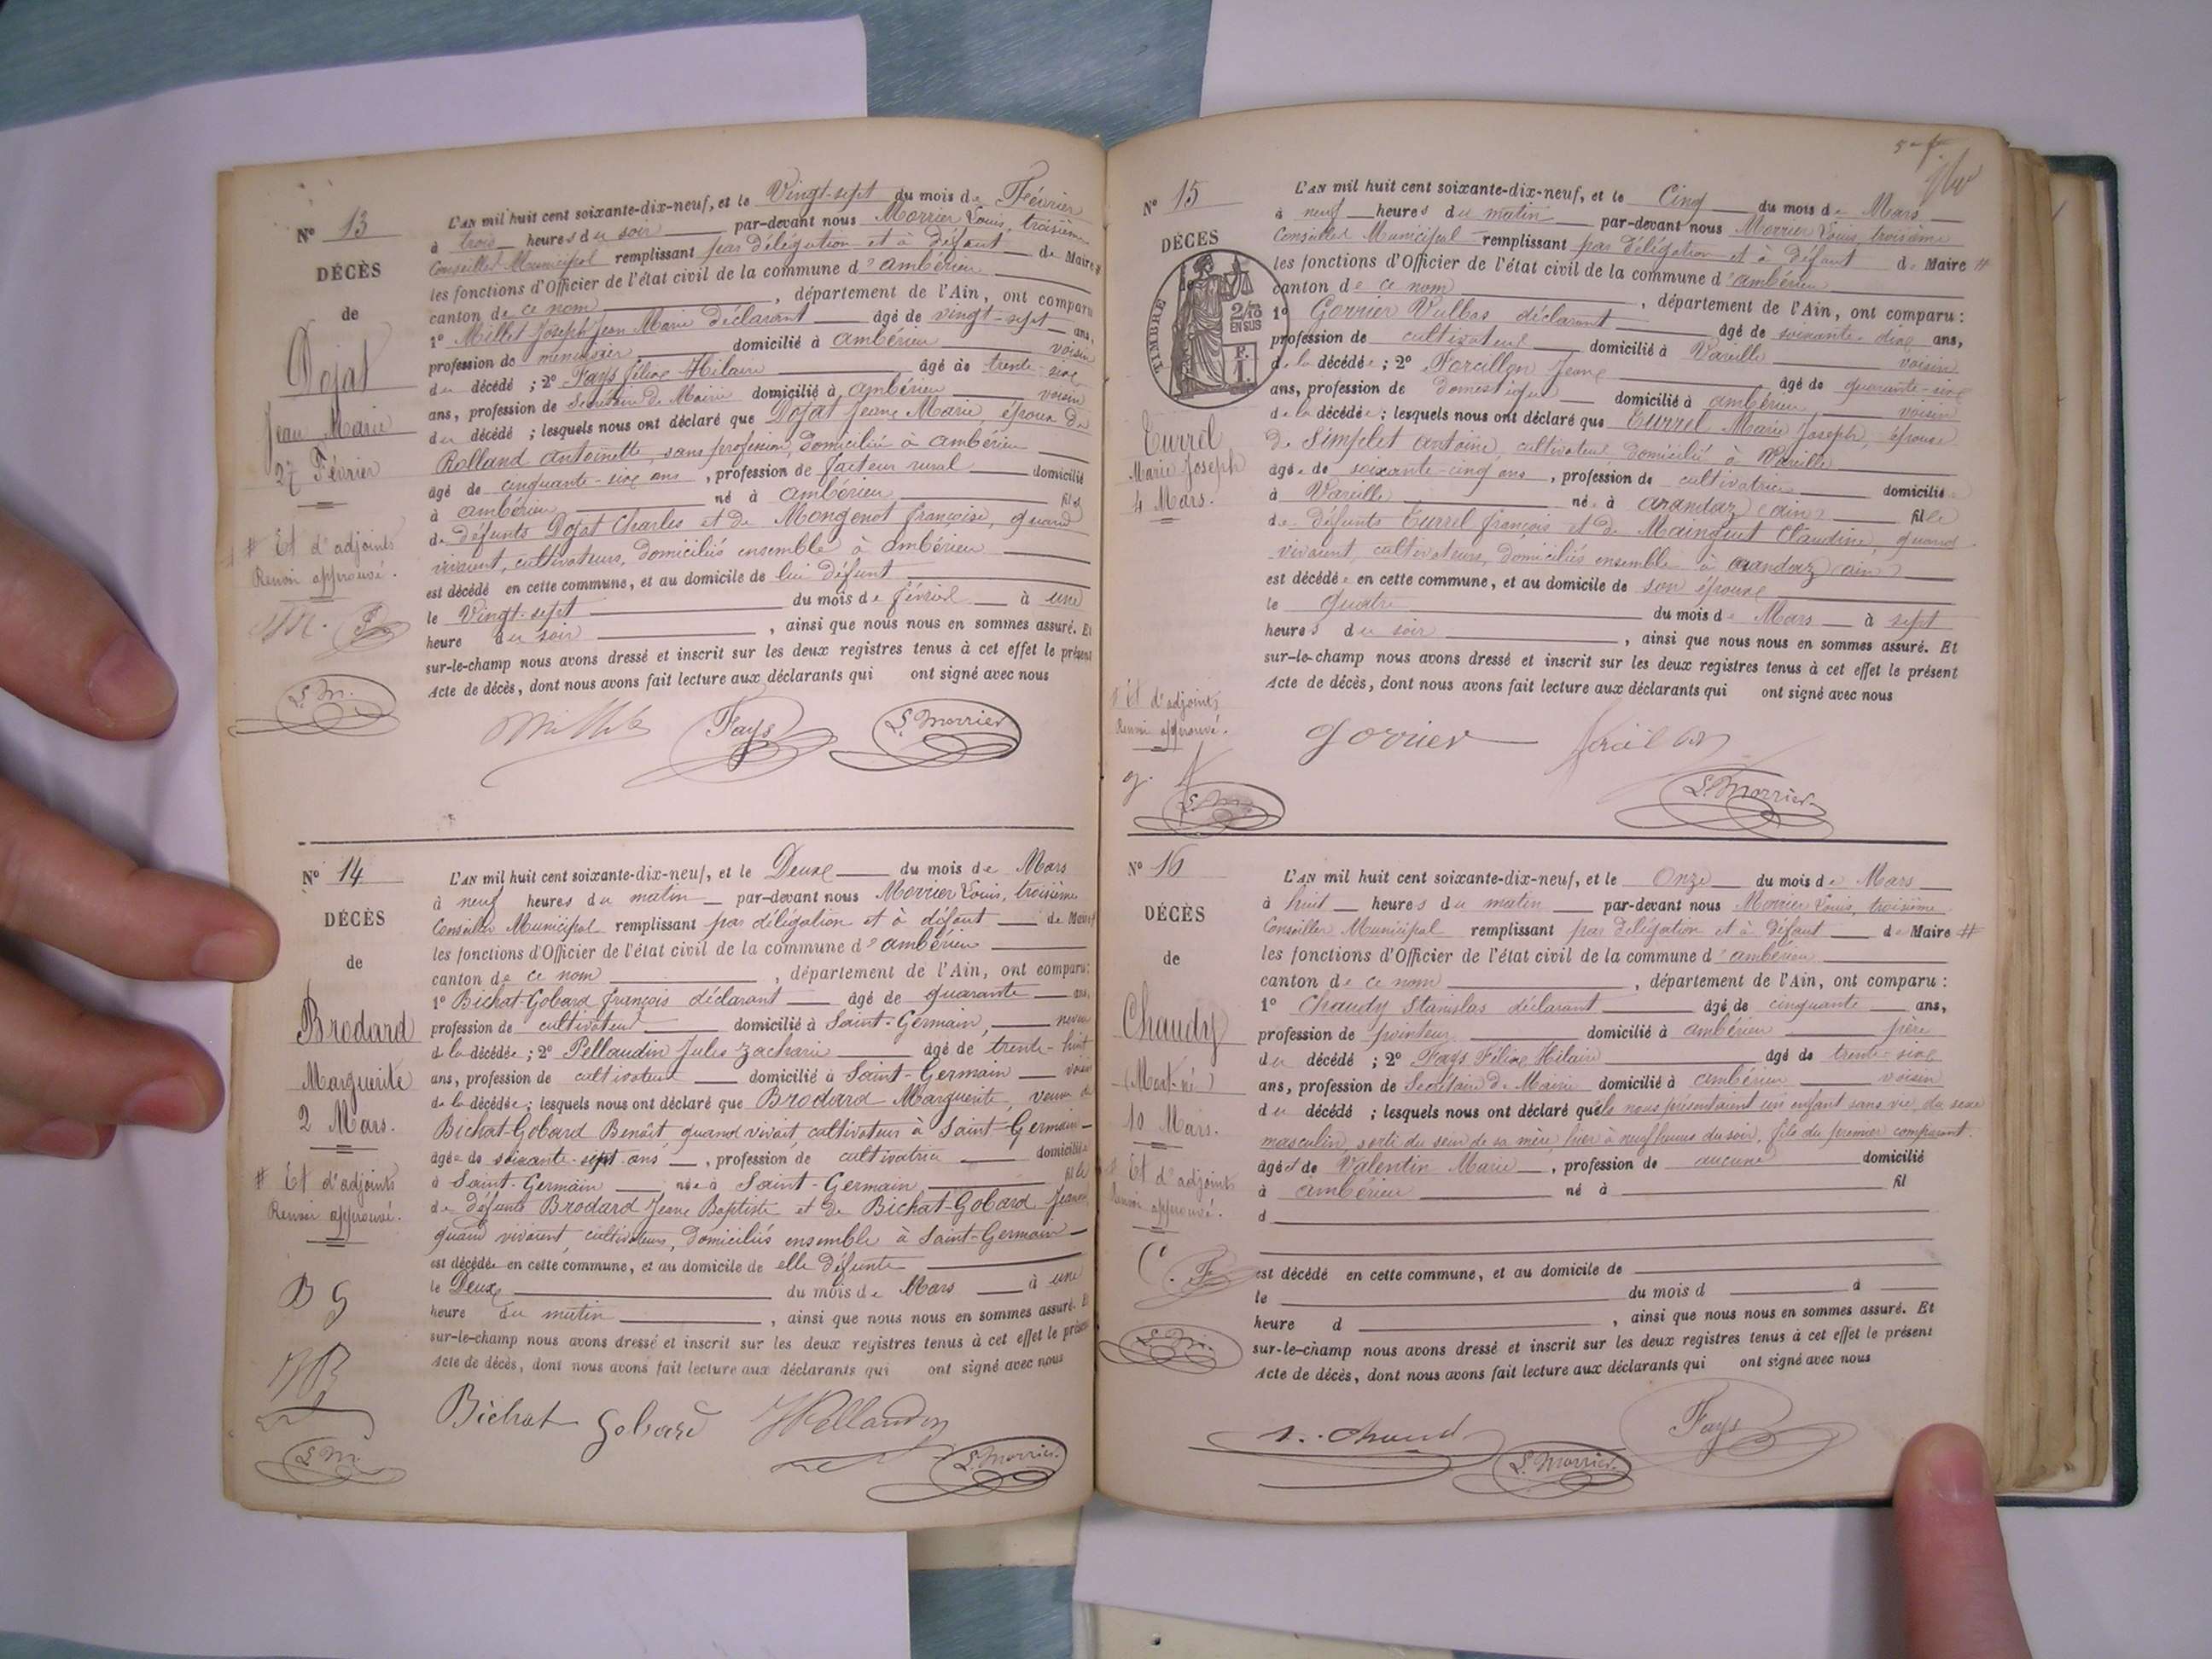 N° 13
DÉCÈS
de
Dojat
Jean Marie
27 Février
# Et d'adjoints
Renvoi approuvé.
L'AN mil huit cent soixante-dix-neuf, et le Vingt-sept du mois de Février
à trois heures du soir par-devant nous Morrier Louis, troisième
Conseiller Municipal remplissant par délégation et à défaut de Maire #
les fonctions d'Officier de l'état civil de la commune d'ambérieu
canton de ce nom, département de l'Ain, ont comparu
1° Millet Joseph Jean Marie déclarant âgé de vingt-sept ans,
profession de menuisier domicilié à ambérieu voisin
du décédé ; 2° Fays félix Hilaire âgé de trente-six
ans, profession de Secrétaire de Mairie domicilié à ambérieu voisin
du décédé ; lesquels nous ont déclaré que Dojat Jean Marie, époux de
Rolland antoinette, sans profession, domiciliée à ambérieu
âgé de cinquante-six ans, profession de facteur rural domicilié
à ambérieu né à ambérieu fils
de défunts Dojat Charles et de Mongenot françoise, quand
vivaient, cultivateurs, domiciliés ensemble à ambérieu
est décédé en cette commune, et au domicile de lui défunt
le Vingt-sept du mois de février à une
heure du soir, ainsi que nous nous en sommes assuré. Et
sur-le-champ nous avons dressé et inscrit sur les deux registres tenus à cet effet le présent
Acte de décès, dont nous avons fait lecture aux déclarants qui ont signé avec nous
L. M.
Fays
L. Morrier
N° 14
DÉCÈS
de
Brodard
Marguerite
2 Mars.
# Et d'adjoints
Renvoi approuvé.
B G
L'AN mil huit cent soixante-dix-neuf, et le Deux du mois de Mars
à neuf heures du matin par-devant nous Morrier Louis, troisième
Conseiller Municipal remplissant par délégation et à défaut de Maire #
les fonctions d'Officier de l'état civil de la commune d'ambérieu
canton de ce nom, département de l'Ain, ont comparu:
1° Bichat-Gobard françois déclarant âgé de quarante ans,
profession de cultivateur domicilié à Saint-Germain, neveu
de la décédée ; 2° Pellaudin Jules Zacharie âgé de trente-huit
ans, profession de cultivateur domicilié à Saint-Germain voisin
de la décédée ; lesquels nous ont déclaré que Brodard Marguerite, veuve de
Bichat-Gobard Benoît, quand vivait cultivateur à Saint-Germain
âgée de soixante-sept ans, profession de cultivatrice domiciliée
à Saint-Germain née à Saint-Germain fille
de défunts Brodard Jean Baptiste et de Bichat-Gobard Jeanne
quand vivaient, cultivateurs, domiciliés ensemble à Saint-Germain
est décédée en cette commune, et au domicile de elle défunte
le Deux du mois de Mars à une
heure du matin, ainsi que nous nous en sommes assuré. Et
sur-le-champ nous avons dressé et inscrit sur les deux registres tenus à cet effet le présent
Acte de décès, dont nous avons fait lecture aux déclarants qui ont signé avec nous
Bichat Gobard
JPellaudin
L. M.
L. Morrier.
N° 15
DÉCES
de
TIMBRE
2/10
EN SUS
Turrel
Marie Joseph
4 Mars.
# Et d'adjoints
Renvoi approuvé.
g. f
L'AN mil huit cent soixante-dix-neuf, et le Cinq du mois de Mars
à neuf heures du matin par-devant nous Morrier Louis, troisième
Conseiller Municipal remplissant par délégation et à défaut de Maire #
les fonctions d'Officier de l'état civil de la commune d'ambérieu
canton de ce nom, département de l'Ain, ont comparu :
1° Gorrier Vulbas déclarant âgé de soixante-dix ans,
profession de cultivateur domicilié à Vareille voisin
de la décédée ; 2° Forcillon Jean âgé de quarante-six
ans, profession de domestique domicilié à ambérieu voisin
de la décédée ; lesquels nous ont déclaré que Turrel Marie Joseph, épouse
de Simplet antoine, cultivateur domicilié à Vareille
âgée de soixante-cinq ans, profession de cultivatrice domiciliée
à Vareille née à arandaz (ain) fille
de défunts Turrel françois et de Mainguet Claudine, quand
vivaient, cultivateurs, domiciliés ensemble à arandaz (ain)
est décédée en cette commune, et au domicile de son époux
le quatre du mois de Mars à sept
heures du soir, ainsi que nous nous en sommes assuré. Et
sur-le-champ nous avons dressé et inscrit sur les deux registres tenus à cet effet le présent
Acte de décès, dont nous avons fait lecture aux déclarants qui ont signé avec nous
gorrier
L. Morrier.
N° 16
DÉCÈS
de
Chaudy
(Mort-né)
10 Mars.
# Et d'adjoints
Renvoi approuvé.
C. F
L. M.
L'AN mil huit cent soixante-dix-neuf, et le Onze du mois de Mars
à huit heures du matin par-devant nous Morrier Louis, troisième
Conseiller Municipal remplissant par délégation et à défaut de Maire #
les fonctions d'Officier de l'état civil de la commune d'ambérieu
canton de ce nom, département de l'Ain, ont comparu :
1° Chaudy Stanislas déclarant âgé de cinquante ans,
profession de pointeur domicilié à ambérieu père
du décédé ; 2° Fays Félix Hilaire âgé de trente-six
ans, profession de Secrétaire de Mairie domicilié à ambérieu voisin
du décédé ; lesquels nous ont déclaré qu'ils nous présentaient un enfant sans vie, du sexe
masculin, sorti du sein de sa mère, hier à neuf heures du soir, fils du premier comparant
âgé et de Valentin Marie, profession de aucune domicilié
à ambérieu né à fil
d
est décédé en cette commune, et au domicile de
le du mois d à
heure d, ainsi que nous nous en sommes assuré. Et
sur-le-champ nous avons dressé et inscrit sur les deux registres tenus à cet effet le présent
Acte de décès, dont nous avons fait lecture aux déclarants qui ont signé avec nous
L. Morrier.
Fays